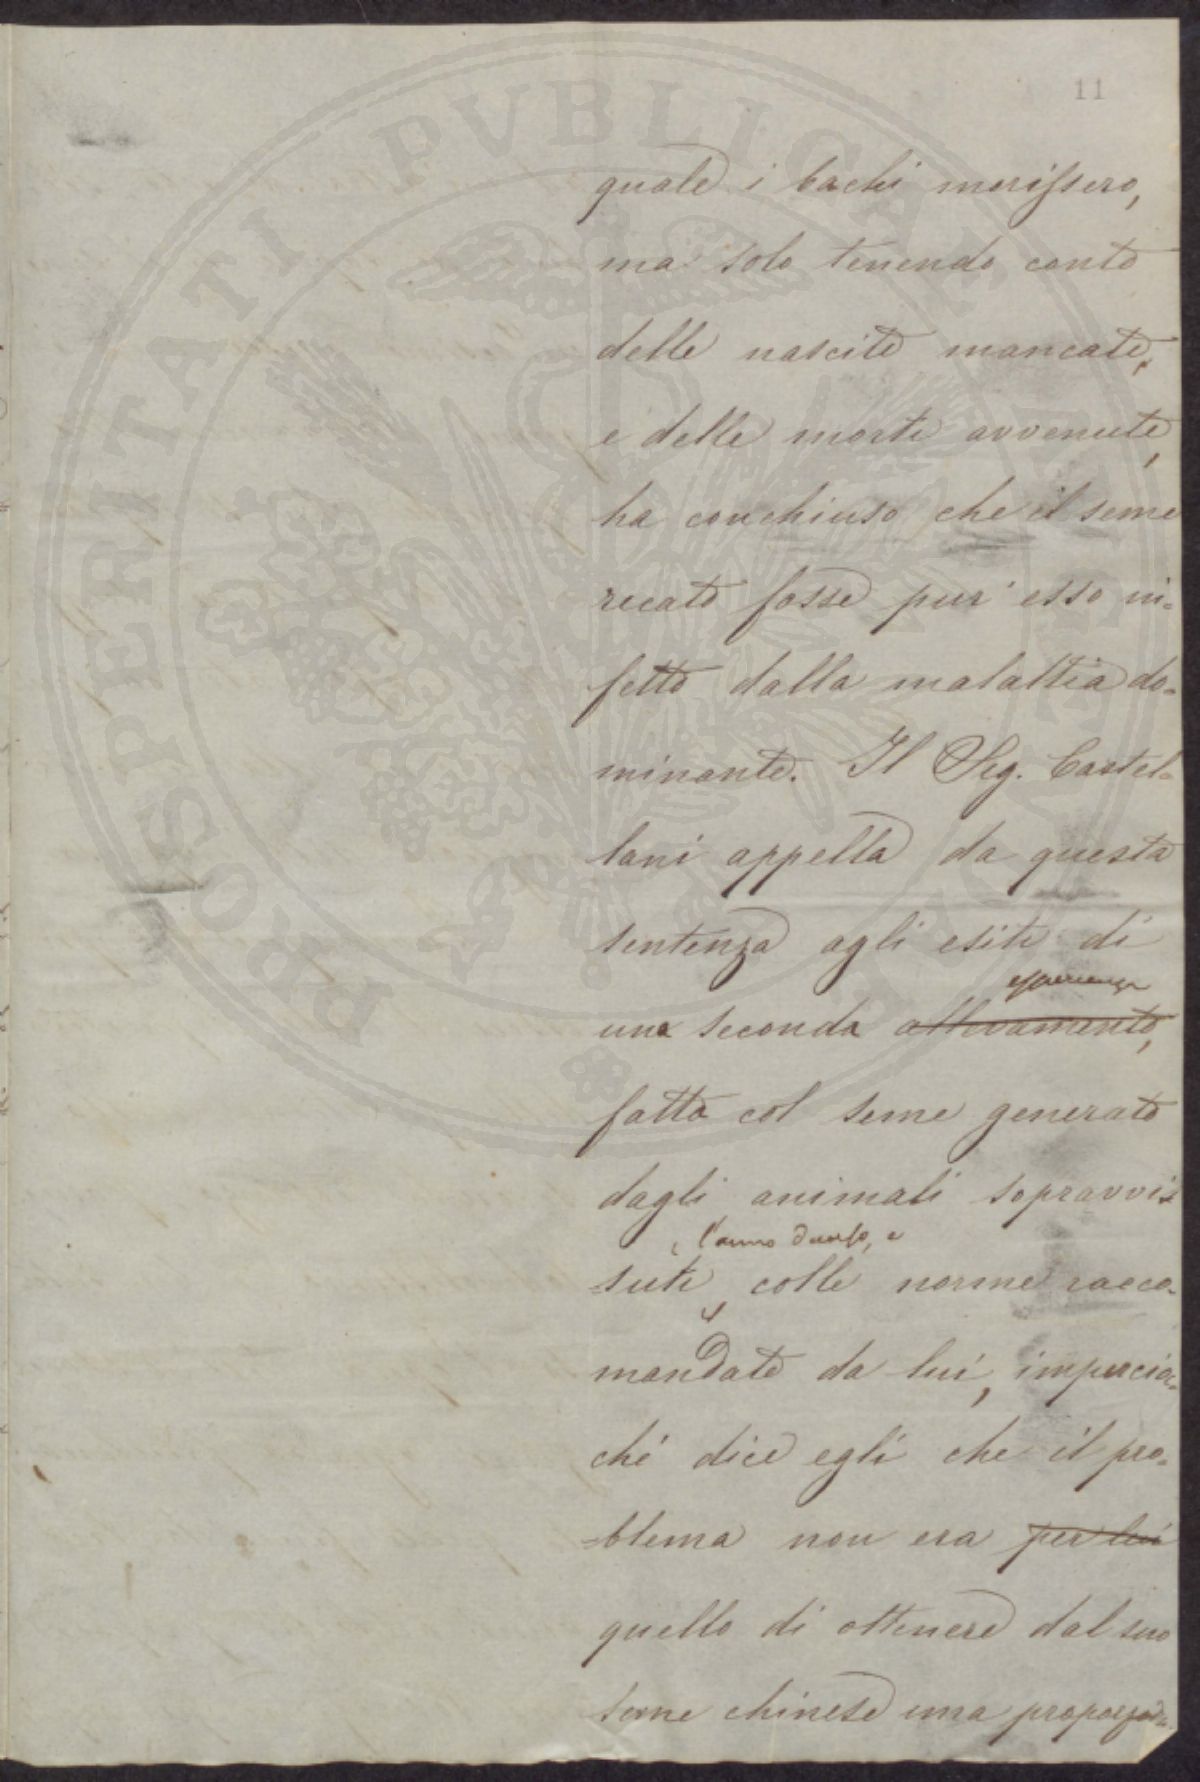 11
PROSPERITATI PVBLICAE AVGENDAE
quale i bachi morissero,
ma solo tenendo conto
delle nascite mancate,
e delle morti avvenute,
ha conchiuso che il seme
recato fosse pur' esso in=
fetto dalla malattia do=
minante. Il Sig. Castel=
lani appella da questa
sentenza agli esiti di
esperienza
una seconda allevamento,
fatta col seme generato
dagli animali sopravvis
l'anno scorso, e
suti, colle norme racco=
mandate da lui, impercioc=
ché dice egli che il pro=
=blema non era per lui
quello di ottenere dal suo
seme chinese una